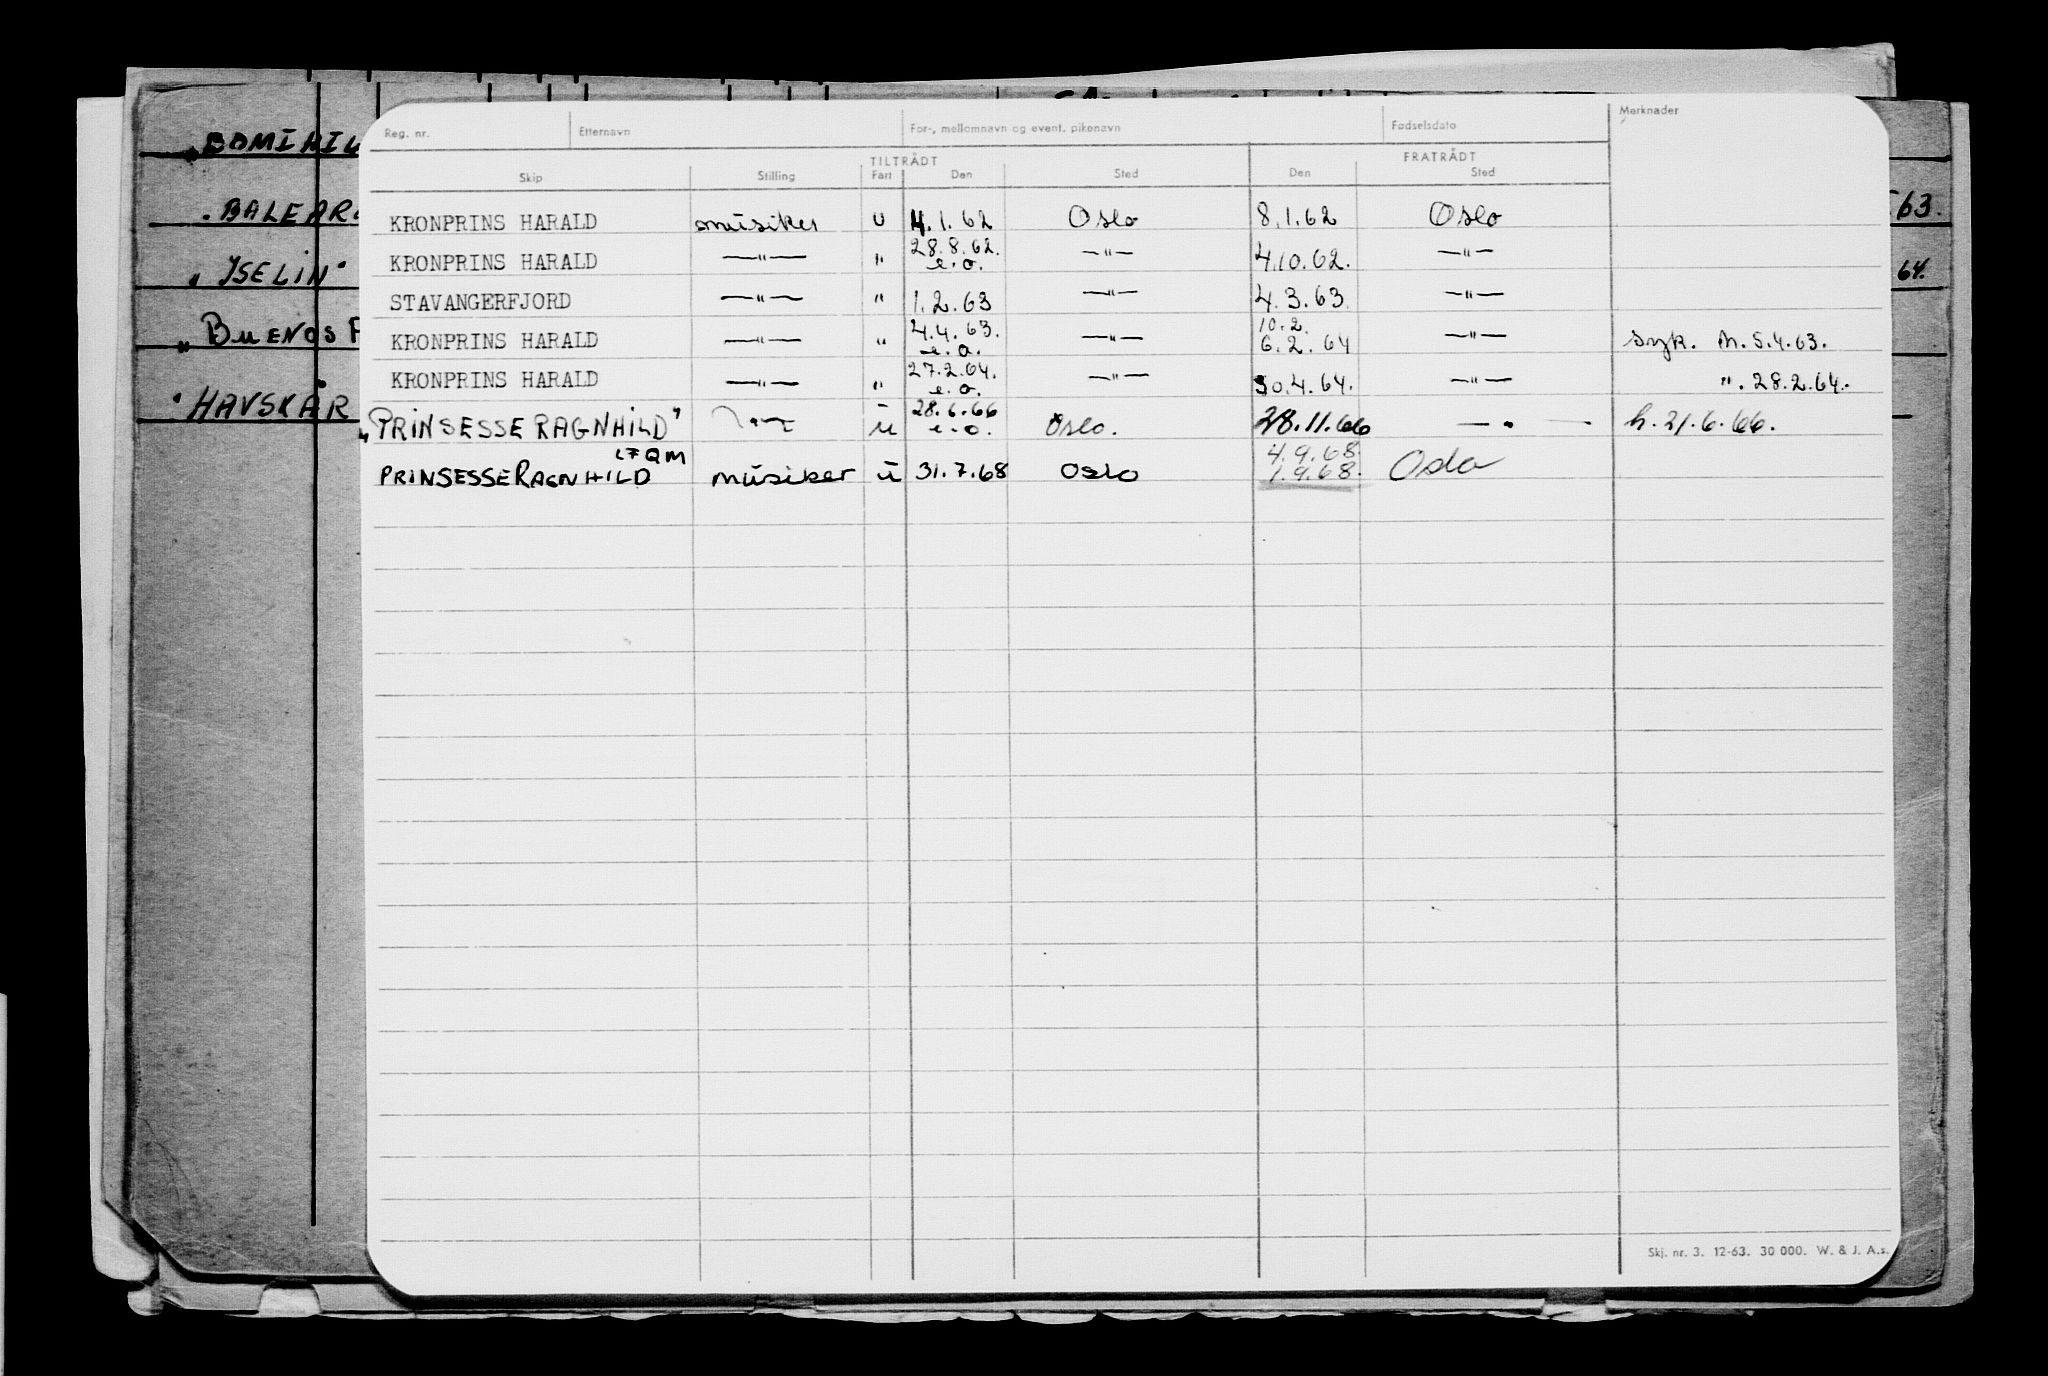 Reg. nr. Etternavn For-, mellomnavn og event. pikenavn Fødselsdato Merknader
TILTRÅDT FRATRÅDT
Skip Stilling Fart Den Sted Den Sted
KRONPRINS HARALD musiker u 4.1.62 Oslo 8.1.62 Oslo
28.8.62.
KRONPRINS HARALD —"— " e.o. —"— 4.10.62. —"—
STAVANGERFJORD —"— " 1.2.63 —"— 4.3.63. —"—
4.4.63. 10.2.
KRONPRINS HARALD —"— " e.o. —"— 6.2.64 —"— syk. h. 5.4.63.
27.2.64.
KRONPRINS HARALD —"— " e.o. —"— 30.4.64. —"— ". 28.2.64.
28.6.66
"PRINSESSE RAGNHILD" —"— u e.o. Oslo. 28.11.66 —"— h. 21.6.66.
LFQM 4.9.68
PRINSESSE RAGNHILD musiker u 31.7.68 Oslo 1.9.68. Oslo
Skj. nr. 3. 12-63. 30 000. W. & J. A.s.
63.
"ISELIN" 64.
"BUENOS
"HAVSKÅR